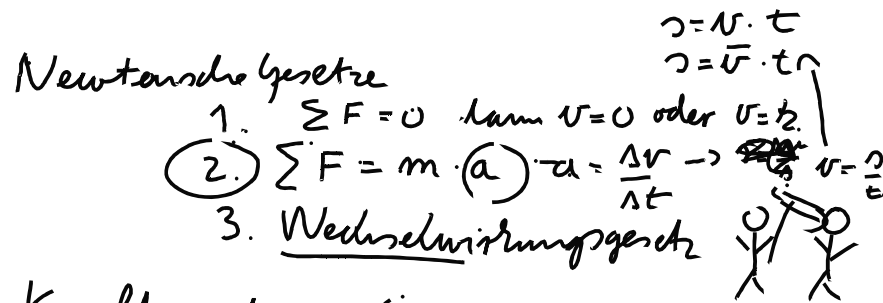 s = v · t
s = v̄ · t
Newtonsche Gesetze
1. ΣF = 0 dann v = 0 oder v = k.
2. ΣF = m · a a = Δv/Δt → v = s/t
3. Wechselwirkungsgesetz